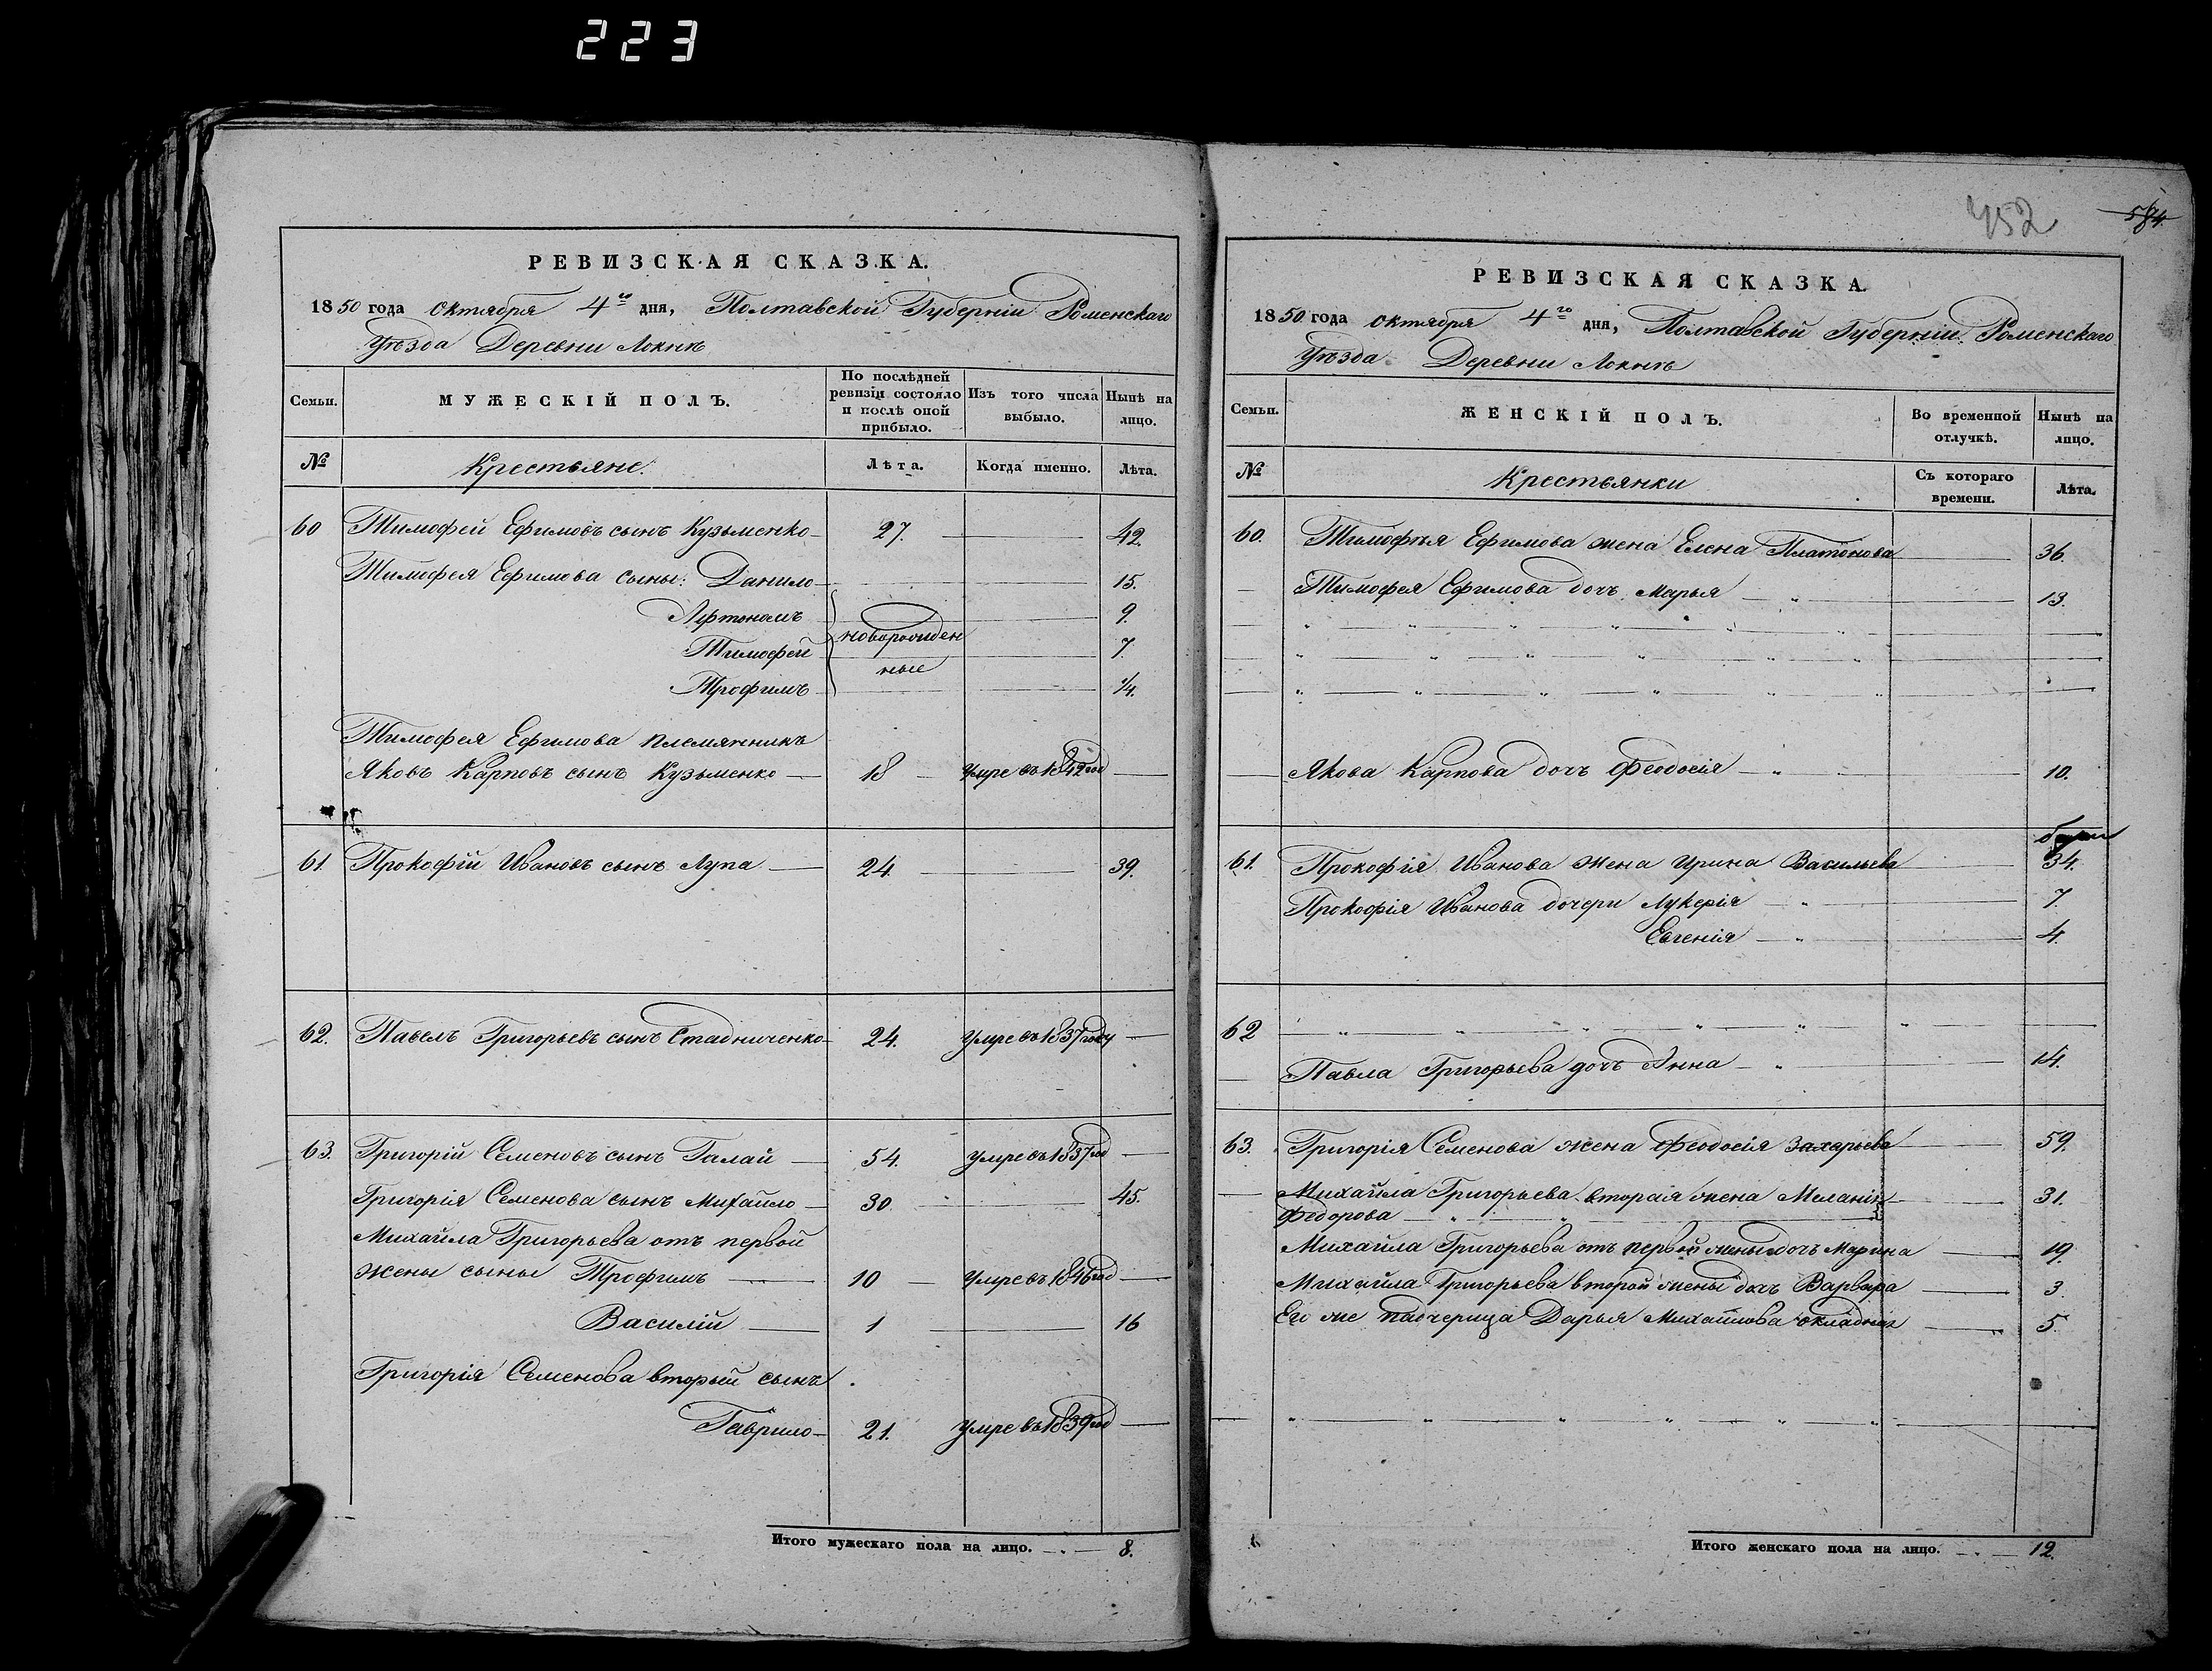 223
РЕВИЗСКАЯ СКАЗКА.
1850 года октября 4го дня, Полтавской Губерніи Роменскаго
Уѣзда Деревни Локнѣ
Семьи.
МУЖЕСКІЙ ПОЛЪ.
По послѣдней ревизіи состояло и послѣ оной прибыло.
Изъ того числа выбыло.
Нынѣ на лицо.
№
Крестьяне.
Лѣта.
Когда именно.
Лѣта.
60 Тимофей Ефимовъ сынъ Кузьменко 27. 42.
Тимофея Ефимова сыны: Данило 15.
Артономъ 9.
новорожден
Тимофей 7.
ные
Трофимъ 1/4.
Тимофея Ефимова племянникъ
Яковъ Карповъ сынъ Кузьменко 18 Умре въ 1842 год
61 Прокофій Ивановъ сынъ Лупа 24. 39.
62. Павелъ Григорьевъ сынъ Стадниченко 24. Умре въ 1837 году
63 Григорій Семеновъ сынъ Галай 54. Умре въ 1837 год
Григорія Семенова сынъ Михайло 30. 45.
Михайла Григорьева отъ первой
жены сыны Трофимъ 10 Умре въ 1846 год
Василій 1 16
Григорія Семенова вторый сынъ
Гаврило 21. Умре въ 1839 год
Итого мужескаго пола на лицо. 8.
452
584.
РЕВИЗСКАЯ СКАЗКА.
1850 года октября 4го дня, Полтавской Губерніи Роменскаго
Уѣзда Деревни Локнѣ
Семьи.
ЖЕНСКІЙ ПОЛЪ.
Во временной отлучкѣ.
Нынѣ на лицо.
№
Крестьянки
Съ котораго времени.
Лѣта.
60. Тимофѣя Ефимова жена Елена Платонова 36.
Тимофея Ефимова дочь Марья 13.
Якова Карпова дочь Феодосія 10.
61. Прокофія Иванова жена Ирина Васильева 34.
Прокофія Иванова дочери Лукерія 7.
Евгенія 4.
62
Павла Григорьева дочь Анна 14.
63. Григорія Семенова жена Феодосія Захарьева 59.
Михайла Григорьева вторая жена Меланія 31.
Федорова
Михайла Григорьева отъ первой жены дочь Марина 19.
Михайла Григорьева второй жены дочь Варвара 3.
Его же падчерица Дарья Михайлова окладная 5.
Итого женскаго пола на лицо. 12.